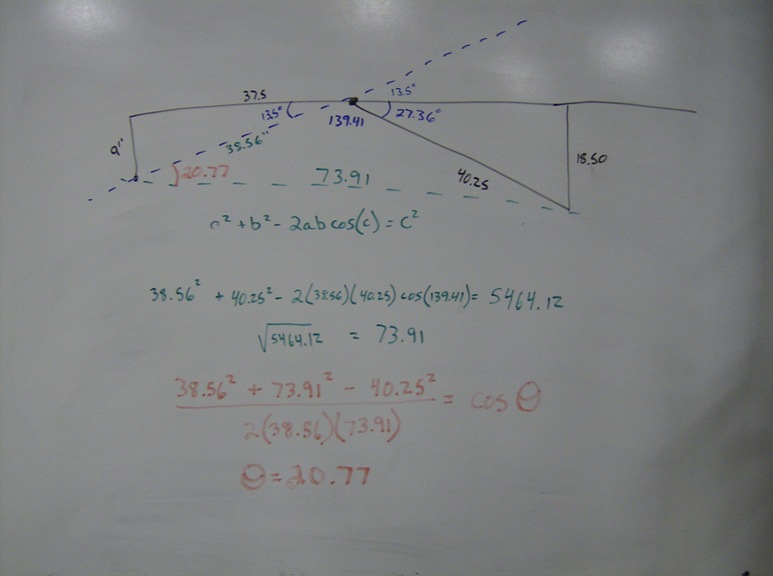 37.5
13.5°
13.5°
27.36°
139.41
38.56"
9"
18.50
20.77
73.91
40.25
a² + b² - 2ab cos(c) = c²
38.56² + 40.25² - 2(38.56)(40.25) cos(139.41) = 5464.12
√5464.12 = 73.91
38.56² + 73.91² - 40.25² = cos Θ
2(38.56)(73.91)
Θ = 20.77